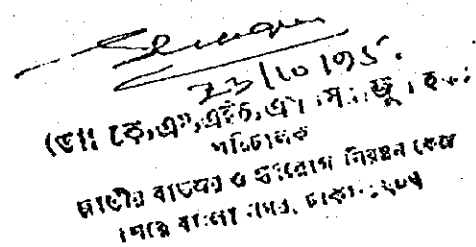 23/10/95.
(ডাঃ কে,এম,এইচ,এস, হক
পরিচালক
জাতীয় বাতজ্বর ও হৃদরোগ নিয়ন্ত্রণ কেন্দ্র
শেরে বাংলা নগর, ঢাকা-১২০৭